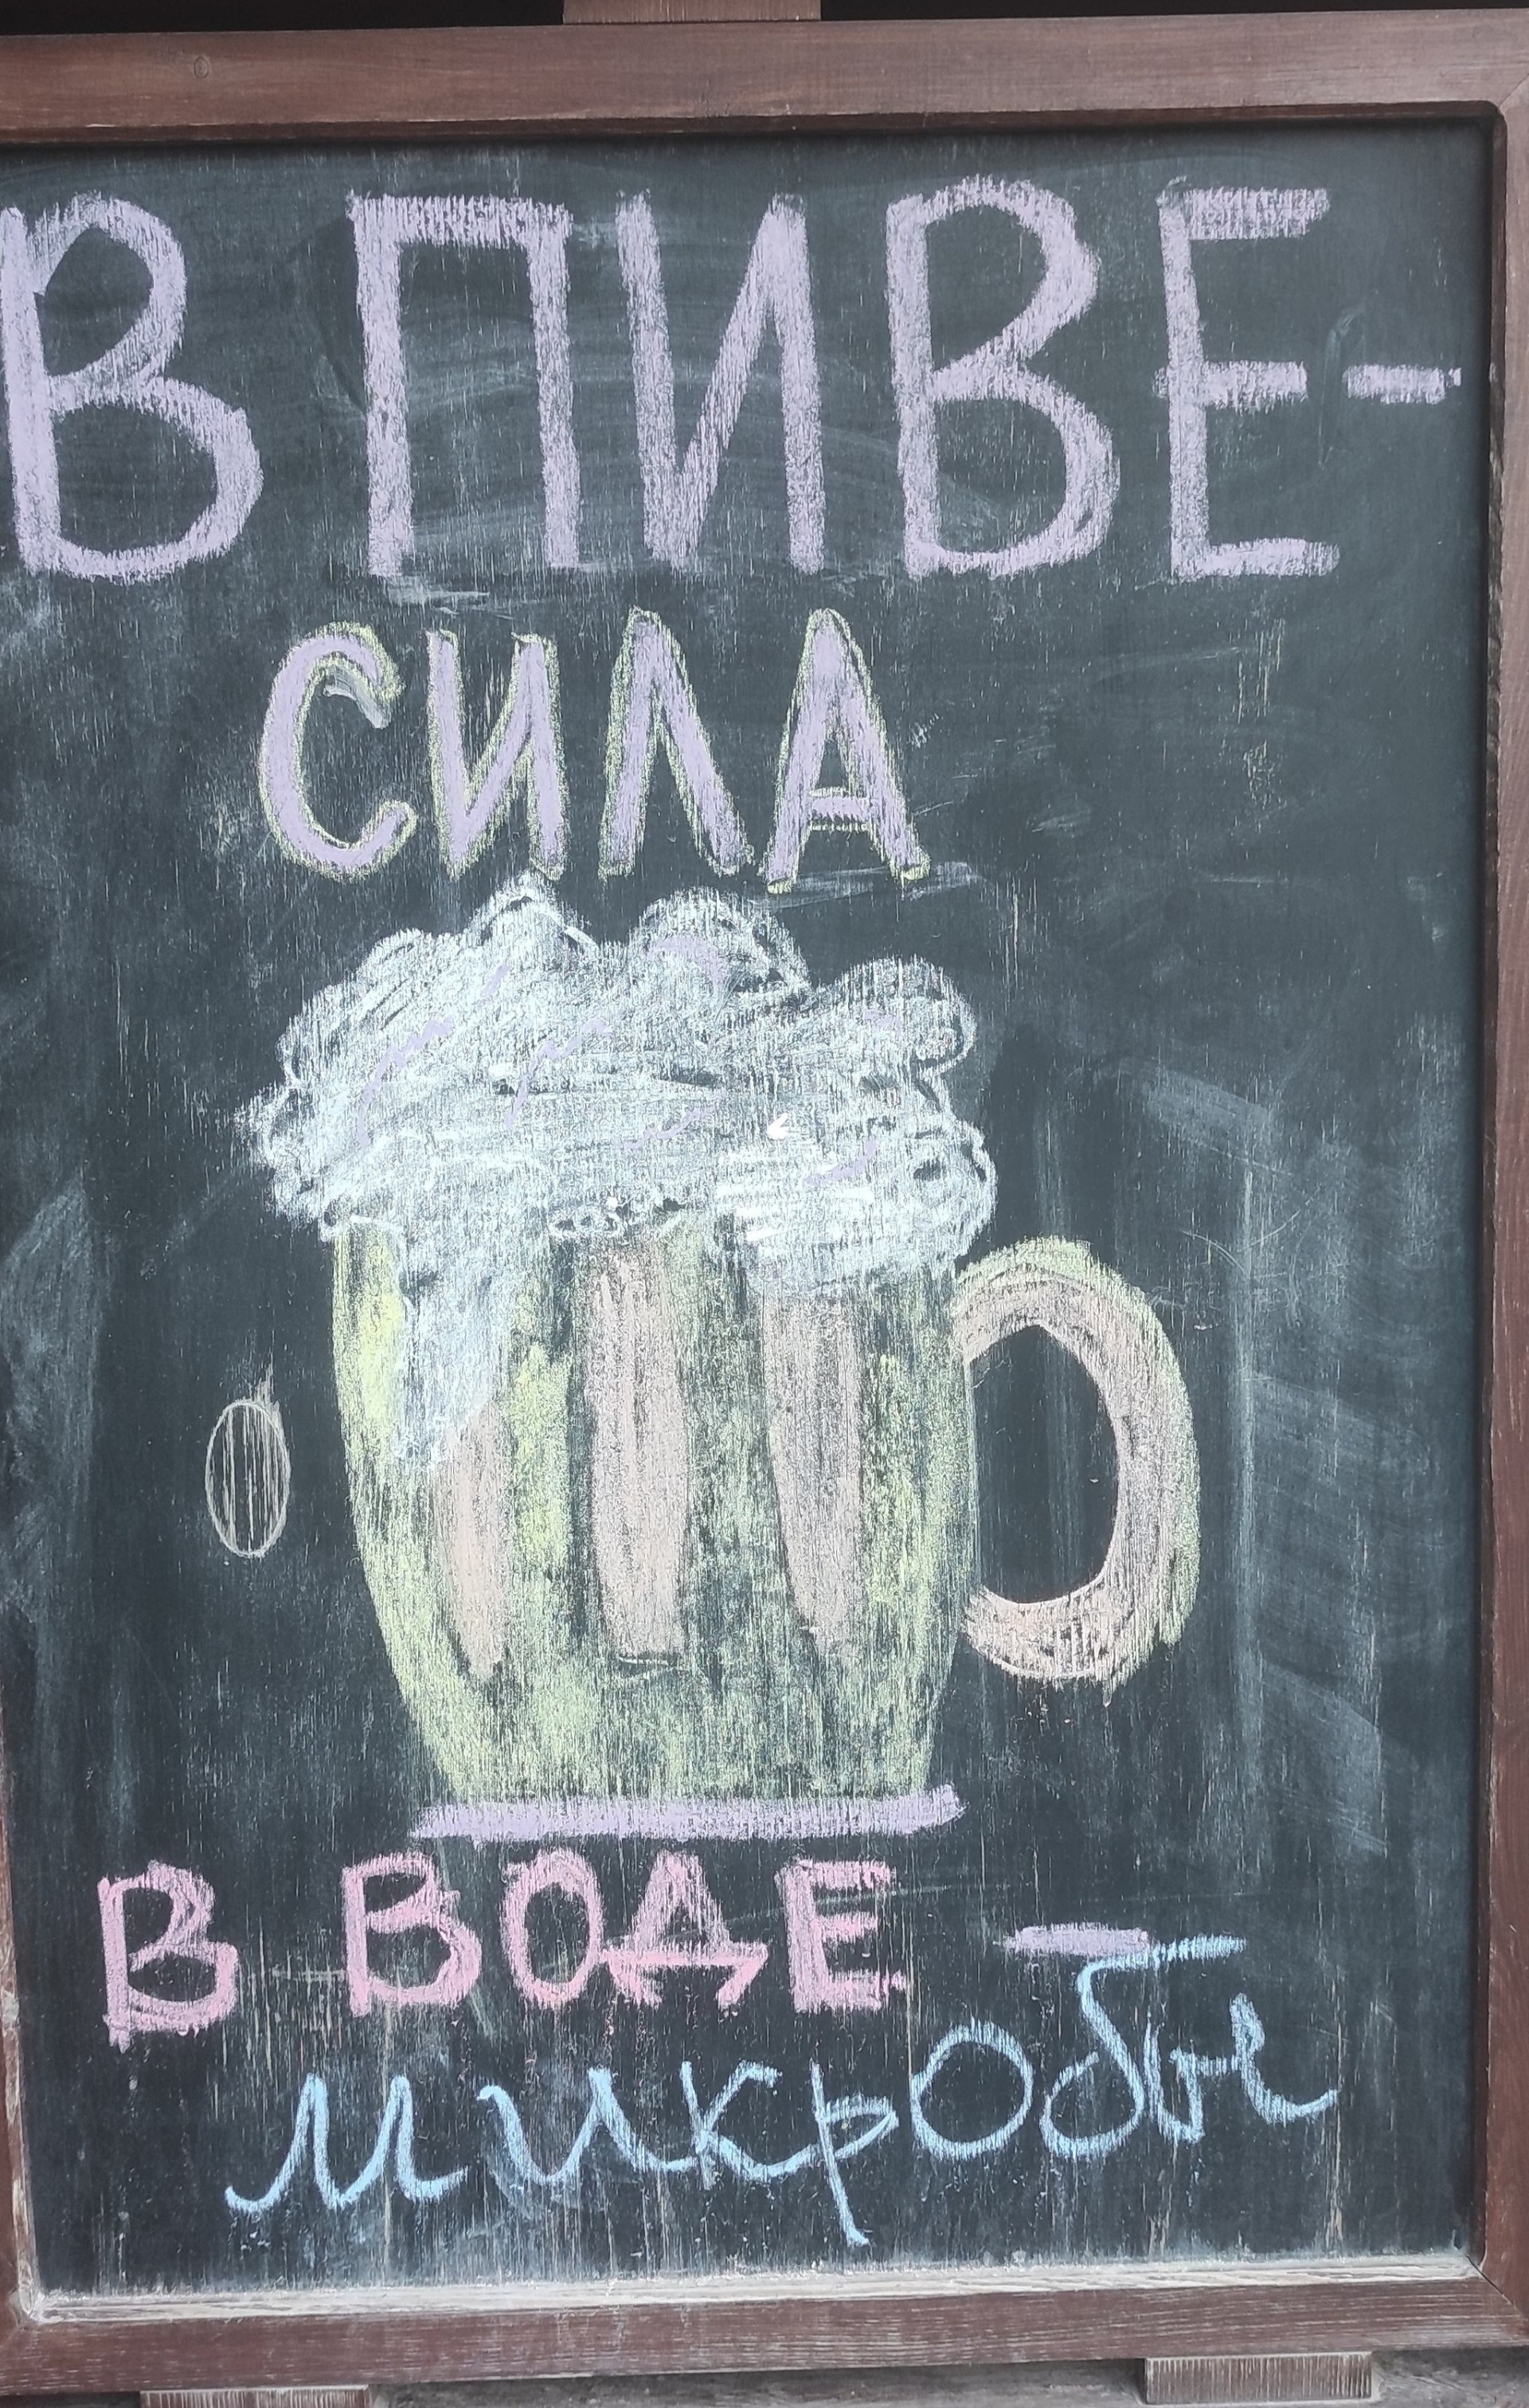 В ПИВЕ-
СИЛА
В ВОДЕ -
микробы